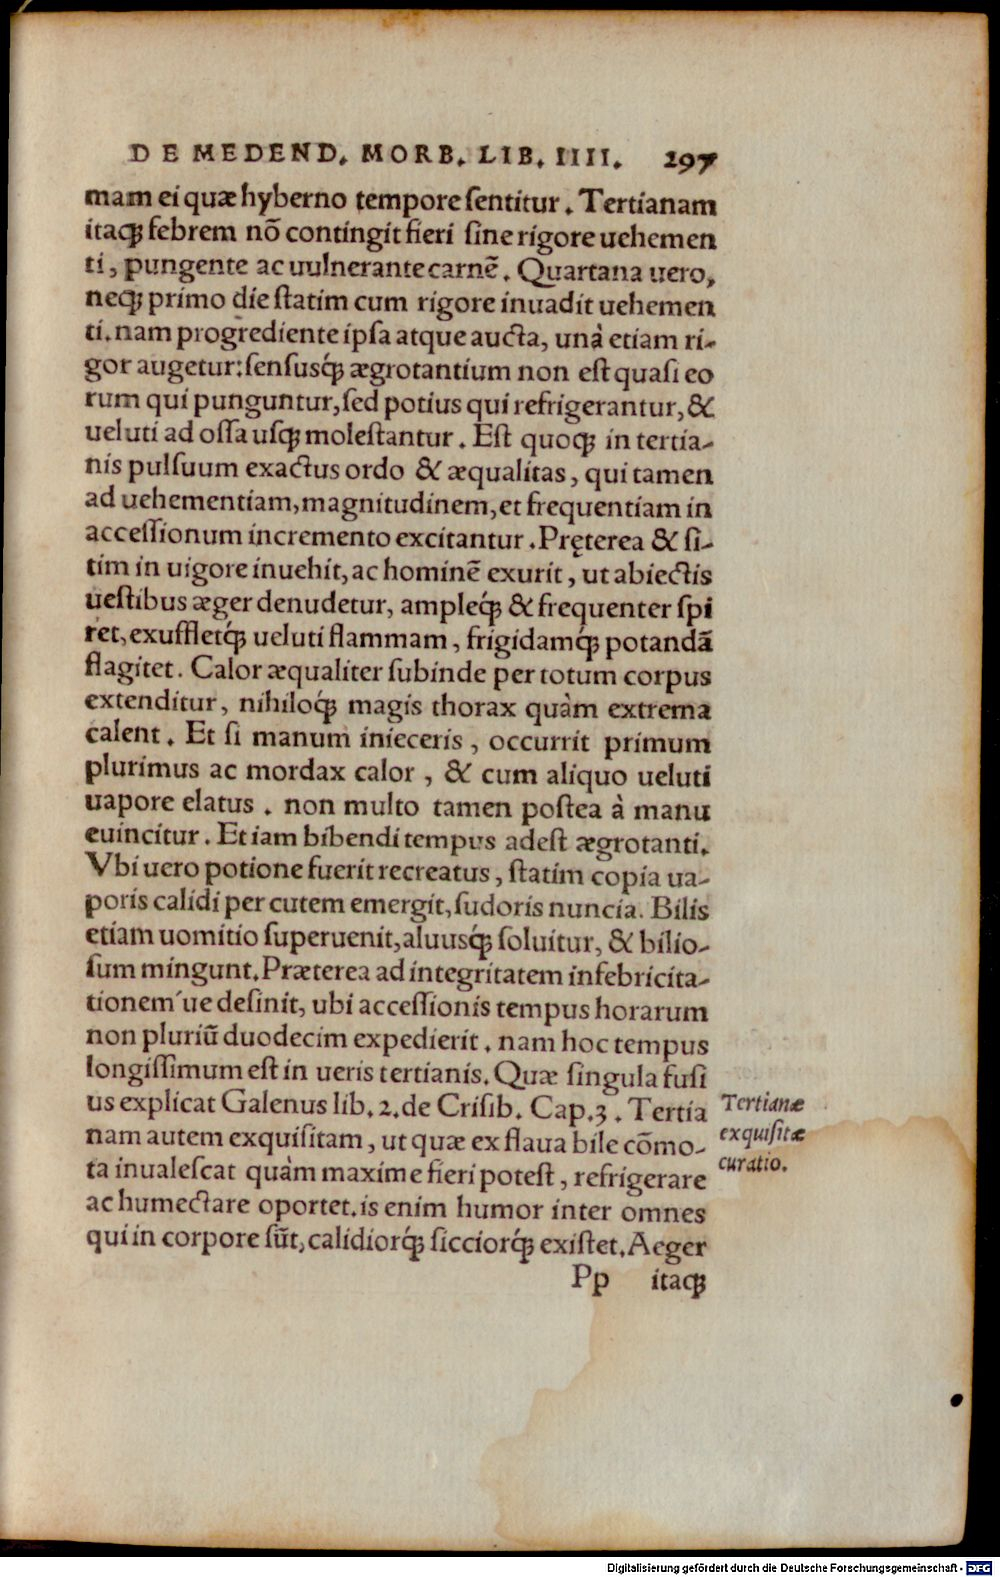 DE MEDEND. MORB. LIB. IIII. 297
mam ei quæ hyberno tempore ſentitur. Tertianam
itaq́ꝫ febrem nõ contingit fieri ſine rigore uehemen
ti, pungente ac uulnerante carnẽ. Quartana uero,
neqꝫ primo die ſtatim cum rigore inuadit uehemen
ti. nam progrediente ipſa atque aucta, unà etiam ri-
gor augetur: ſenſusq́ꝫ ægrotantium non eſt quaſi eo
rum qui punguntur, ſed potius qui refrigerantur, &
ueluti ad oſſa uſqꝫ moleſtantur. Eſt quoqꝫ in tertia-
nis pulſuum exactus ordo & æqualitas, qui tamen
ad uehementiam, magnitudinem, et frequentiam in
acceſſionum incremento excitantur. Pręterea & ſi-
tim in uigore inuehit, ac hominẽ exurit, ut abiectis
ueſtibus æger denudetur, ampleq́ꝫ & frequenter ſpi
ret, exuffletq́ꝫ ueluti flammam, frigidamq́ꝫ potandã
flagitet. Calor æqualiter ſubinde per totum corpus
extenditur, nihiloq́ꝫ magis thorax quàm extrema
calent. Et ſi manum inieceris, occurrit primum
plurimus ac mordax calor, & cum aliquo ueluti
uapore elatus. non multo tamen poſtea à manu
euincitur. Etiam bibendi tempus adeſt ægrotanti.
Vbi uero potione fuerit recreatus, ſtatim copia ua-
poris calidi per cutem emergit, ſudoris nuncia. Bilis
etiam uomitio ſuperuenit, aluusq́ꝫ ſoluitur, & bilio-
ſum mingunt. Præterea ad integritatem infebricita-
tionem´ue deſinit, ubi acceſſionis tempus horarum
non pluriũ duodecim expedierit. nam hoc tempus
longiſſimum eſt in ueris tertianis. Quæ ſingula fuſi
us explicat Galenus lib. 2. de Criſib. Cap. 3. Tertia
nam autem exquiſitam, ut quæ ex flaua bile cõmo-
ta inualeſcat quàm maxime fieri poteſt, refrigerare
ac humectare oportet. is enim humor inter omnes
qui in corpore ſũt, calidiorq́ꝫ ſicciorq́ꝫ exiſtet. Aeger
Tertianæ
exquiſitæ
curatio.
Pp itaqꝫ
Digitalisierung gefördert durch die Deutsche Forschungsgemeinschaft - DFG